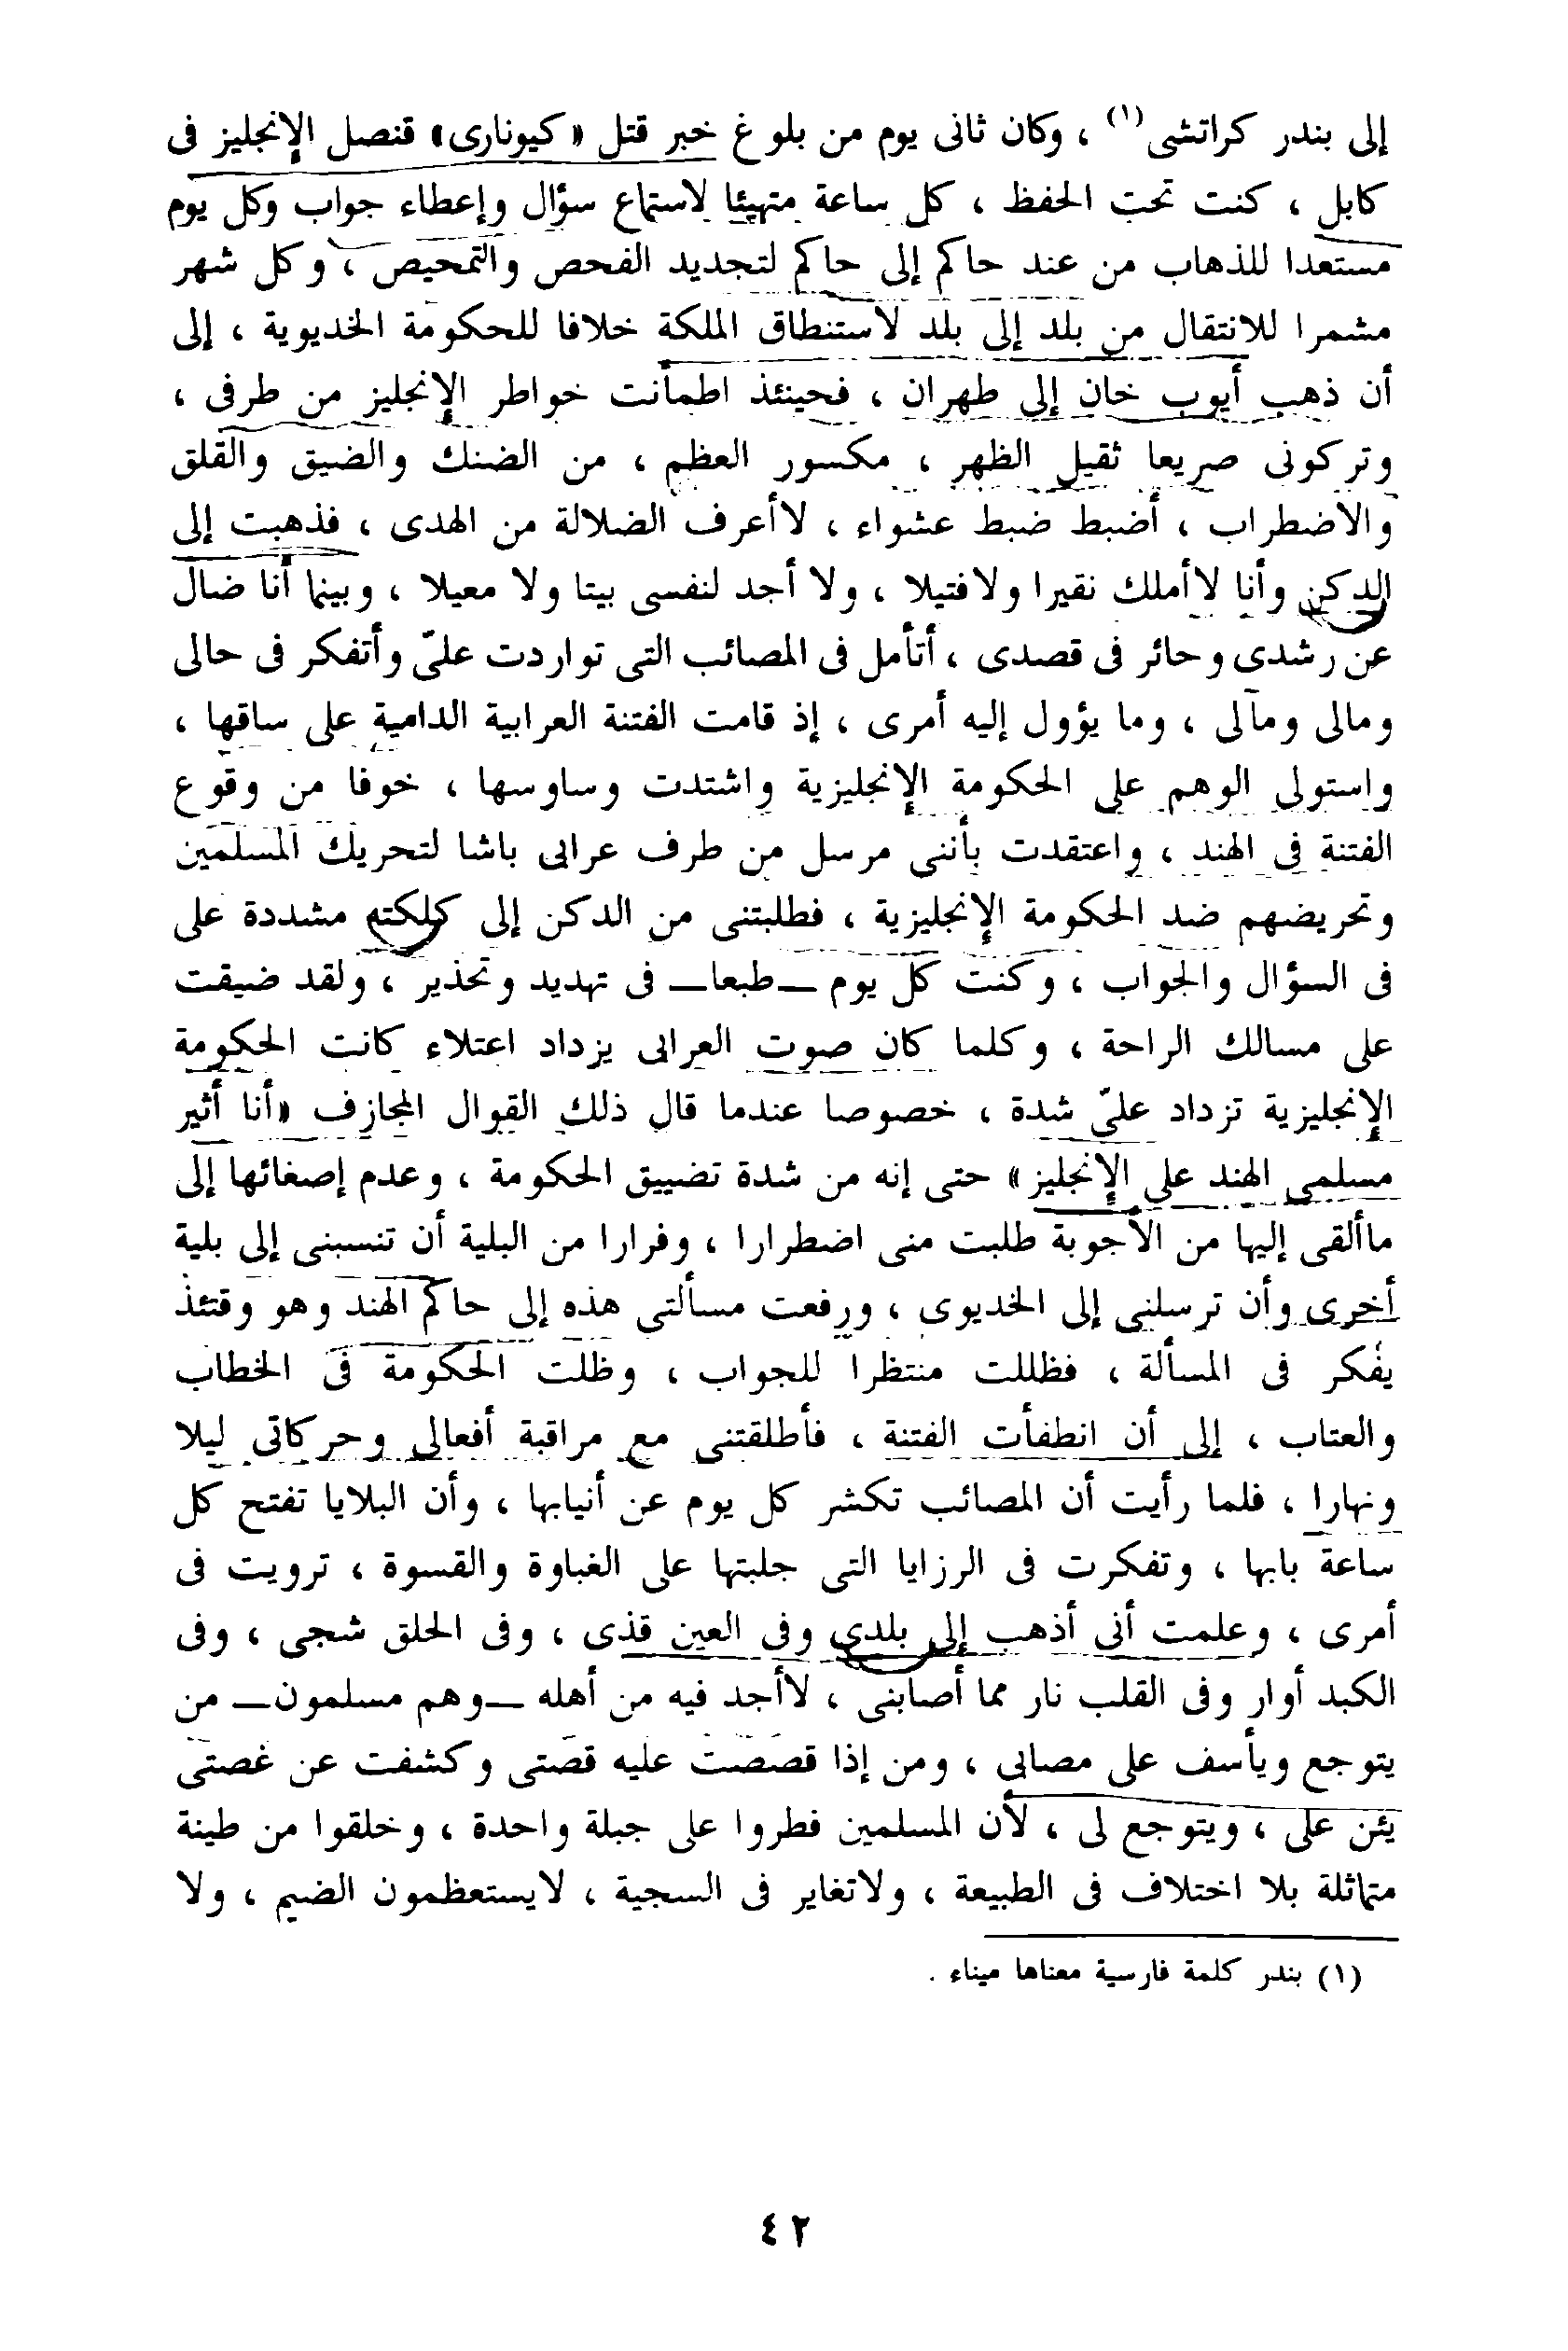 إلى بندر كراتشى(١) ، وكان ثانى يوم من بلوغ خبر قتل «كيونارى» قنصل الإنجليز فى
كابل ، كنت تحت الحفظ ، كل ساعة متهيئا لاستماع سؤال وإعطاء جواب وكل يوم
مستعدا للذهاب من عند حاكم إلى حاكم لتجديد الفحص والتمحيص ، وكل شهر
مشمرا للانتقال من بلد إلى بلد لاستنطاق الملكة خلافا للحكومة الخديوية ، إلى
أن ذهب أيوب خان إلى طهران ، فحينئذ اطمأنت خواطر الإنجليز من طرفى ،
وتركونى صريعا ثقيل الظهر ، مكسور العظم ، من الضنك والضيق والقلق
والاضطراب ، أضبط ضبط عشواء ، لاأعرف الضلالة من الهدى ، فذهبت إلى
الدكن وأنا لاأملك نقيرا ولافتيلا ، ولا أجد لنفسى بيتا ولا معيلا ، وبينما أنا ضال
عن رشدى وحائر فى قصدى ، أتأمل فى المصائب التى تواردت علىّ وأتفكر فى حالى
ومالى ومآلى ، وما يؤول إليه أمرى ، إذ قامت الفتنة العرابية الدامية على ساقها ،
واستولى الوهم على الحكومة الإنجليزية واشتدت وساوسها ، خوفا من وقوع
الفتنة فى الهند ، واعتقدت بأننى مرسل من طرف عرابى باشا لتحريك المسلمين
وتحريضهم ضد الحكومة الإنجليزية ، فطلبتنى من الدكن إلى كلكته مشددة على
فى السؤال والجواب ، وكنت كل يوم —طبعا— فى تهديد وتحذير ، ولقد ضيقت
على مسالك الراحة ، وكلما كان صوت العرابى يزداد اعتلاء كانت الحكومة
الإنجليزية تزداد علىّ شدة ، خصوصا عندما قال ذلك القوال المجازف «أنا أثير
مسلمى الهند على الإنجليز» حتى إنه من شدة تضييق الحكومة ، وعدم إصغائها إلى
ماألقى إليها من الأجوبة طلبت منى اضطرارا ، وفرارا من البلية أن تنسبنى إلى بلية
أخرى وأن ترسلنى إلى الخديوى ، ورفعت مسألتى هذه إلى حاكم الهند وهو وقتئذ
يفكر فى المسألة ، فظللت منتظرا للجواب ، وظلت الحكومة فى الخطاب
والعتاب ، إلى أن انطفأت الفتنة ، فأطلقتنى مع مراقبة أفعالى وحركاتى ليلا
ونهارا ، فلما رأيت أن المصائب تكشر كل يوم عن أنيابها ، وأن البلايا تفتح كل
ساعة بابها ، وتفكرت فى الرزايا التى جلبتها على الغباوة والقسوة ، ترويت فى
أمرى ، وعلمت أنى أذهب إلى بلدى وفى العين قذى ، وفى الحلق شجى ، وفى
الكبد أوار وفى القلب نار مما أصابنى ، لاأجد فيه من أهله —وهم مسلمون— من
يتوجع ويأسف على مصابى ، ومن إذا قصصت عليه قصتى وكشفت عن غصتى
يئن على ، ويتوجع لى ، لأن المسلمين فطروا على جبلة واحدة ، وخلقوا من طينة
متماثلة بلا اختلاف فى الطبيعة ، ولاتغاير فى السجية ، لايستعظمون الضيم ، ولا
(١) بندر كلمة فارسية معناها ميناء .
٤٢